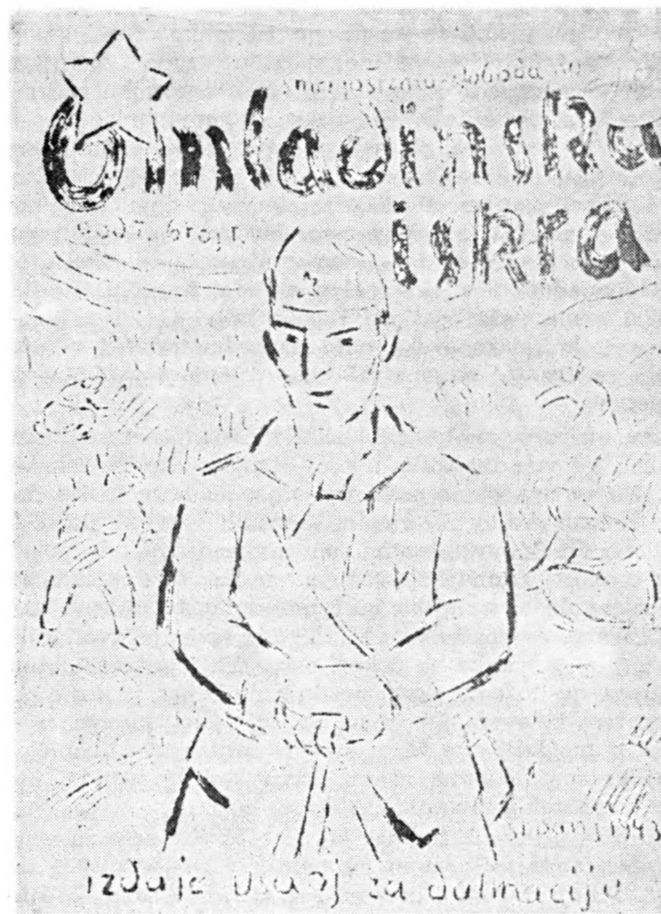 smrt fašizmu sloboda
Omladinska
iskra
broj 1
studeni 1943
izdaje usaoj za dalmaciju